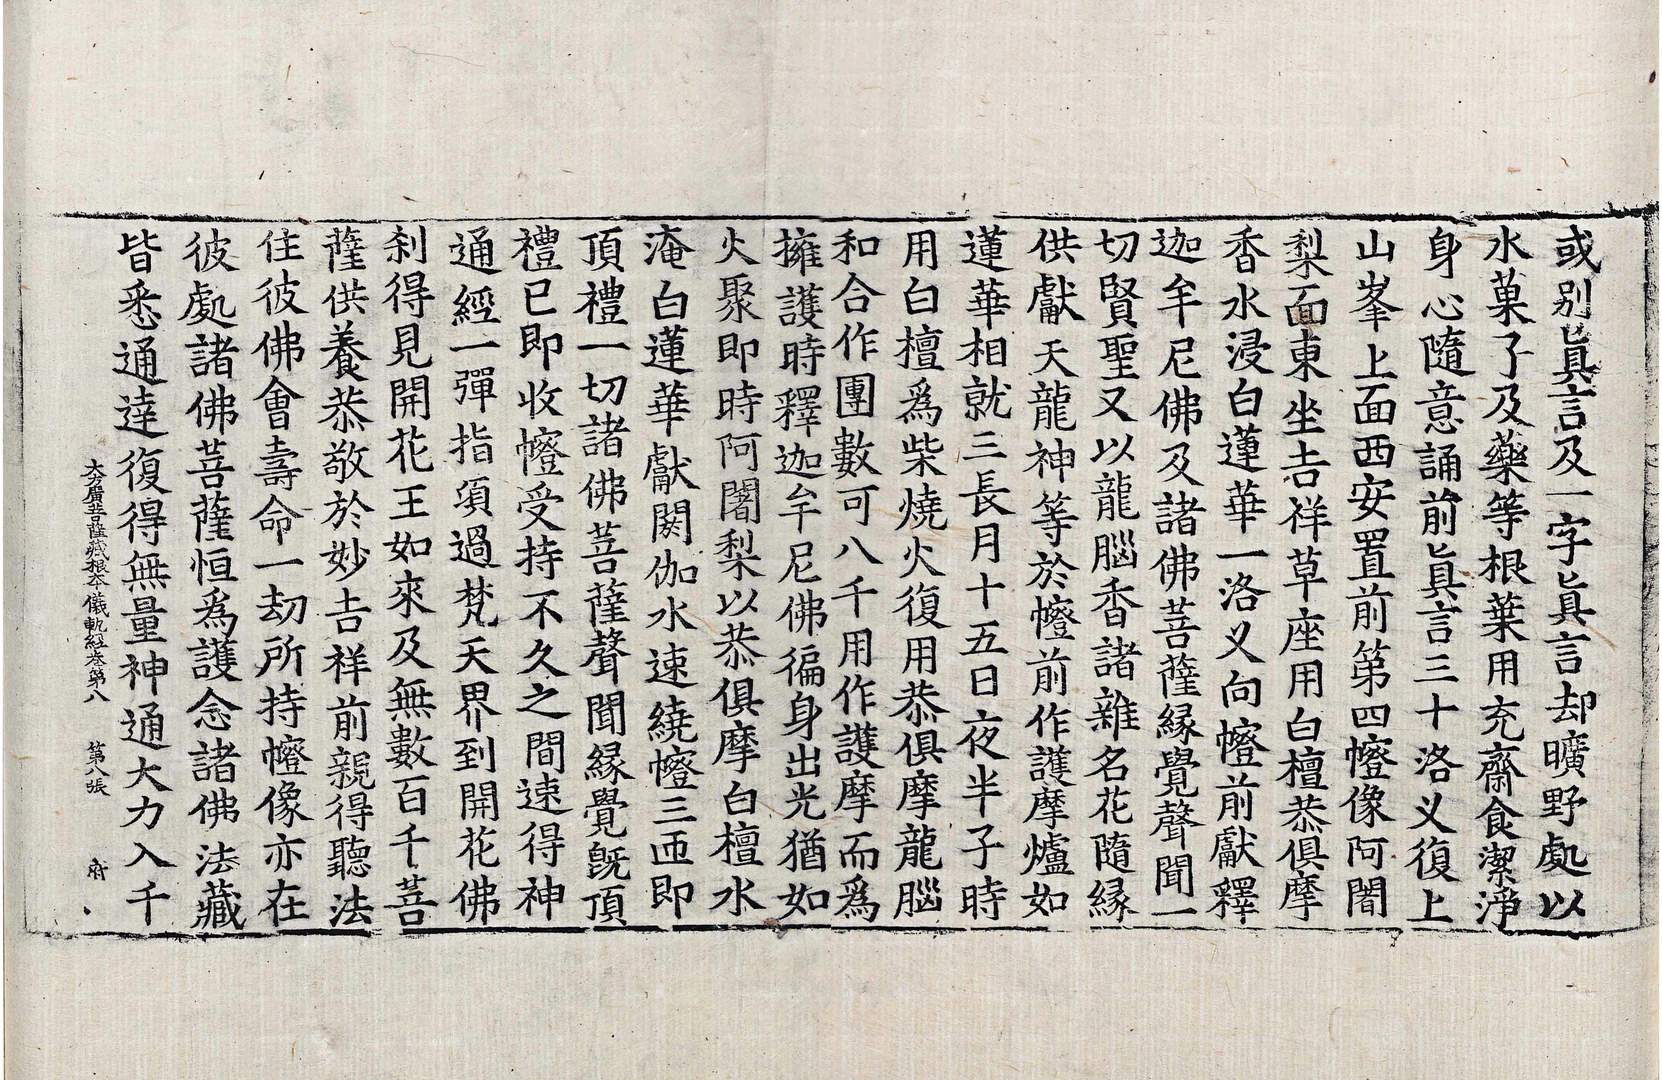 或别眞言及一字眞言却曠野處以
水菓子及藥等根葉用充齋食潔淨
身心隨意誦前眞言三十洛义復上
山峯上面西安置前第四㡧像阿闍
梨面東坐吉祥草座用白檀恭俱摩
香水浸白蓮華一洛义向㡧前獻釋
迦牟尼佛及諸佛菩薩緣覺聲聞一
切賢聖又以龍腦香諸雜名花隨緣
供獻天龍神等於㡧前作護摩爐如
蓮華相就三長月十五日夜半子時
用白檀爲柴燒火復用恭俱摩龍腦
和合作團數可八千用作護摩而爲
擁護時釋迦牟尼佛徧身出光猶如
火聚即時阿闍梨以恭俱摩白檀水
淹白蓮華獻閼伽水速繞㡧三匝即
頂禮一切諸佛菩薩聲聞緣覺旣頂
禮已即收㡧受持不久之間速得神
通經一彈指須過梵天界到開花佛
刹得見開花王如來及無數百千菩
薩供養恭敬於妙吉祥前親得聽法
住彼佛會壽命一劫所持㡧像亦在
彼處諸佛菩薩恒爲護念諸佛法藏
皆悉通達復得無量神通大力入千
大方廣菩薩藏根本儀軌經卷第八 第八張 府